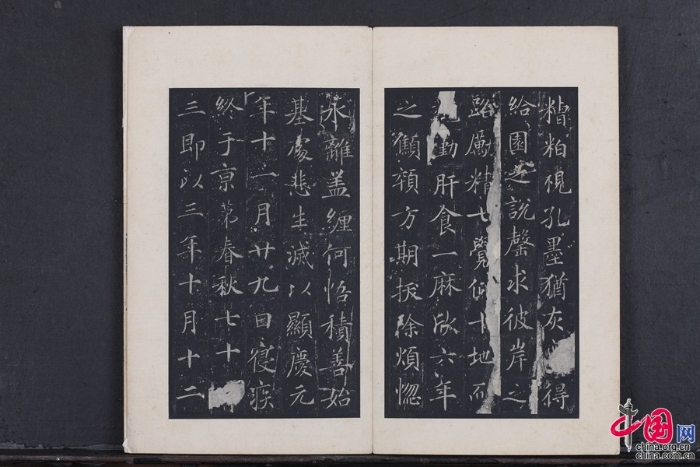 糟粕視孔墨猶灰得
給園之說罄求彼岸之
路勵精七覺仰十地而
勤肝食一麻欣六年
之顦顇方期拔除煩惚
永離盖纏何悟積善始
基處悲生滅以顯慶元
年十一月廿九日寑疾
終于京第春秋七十
三即以三年十月十二
中国网
china.org.cn
china.com.cn